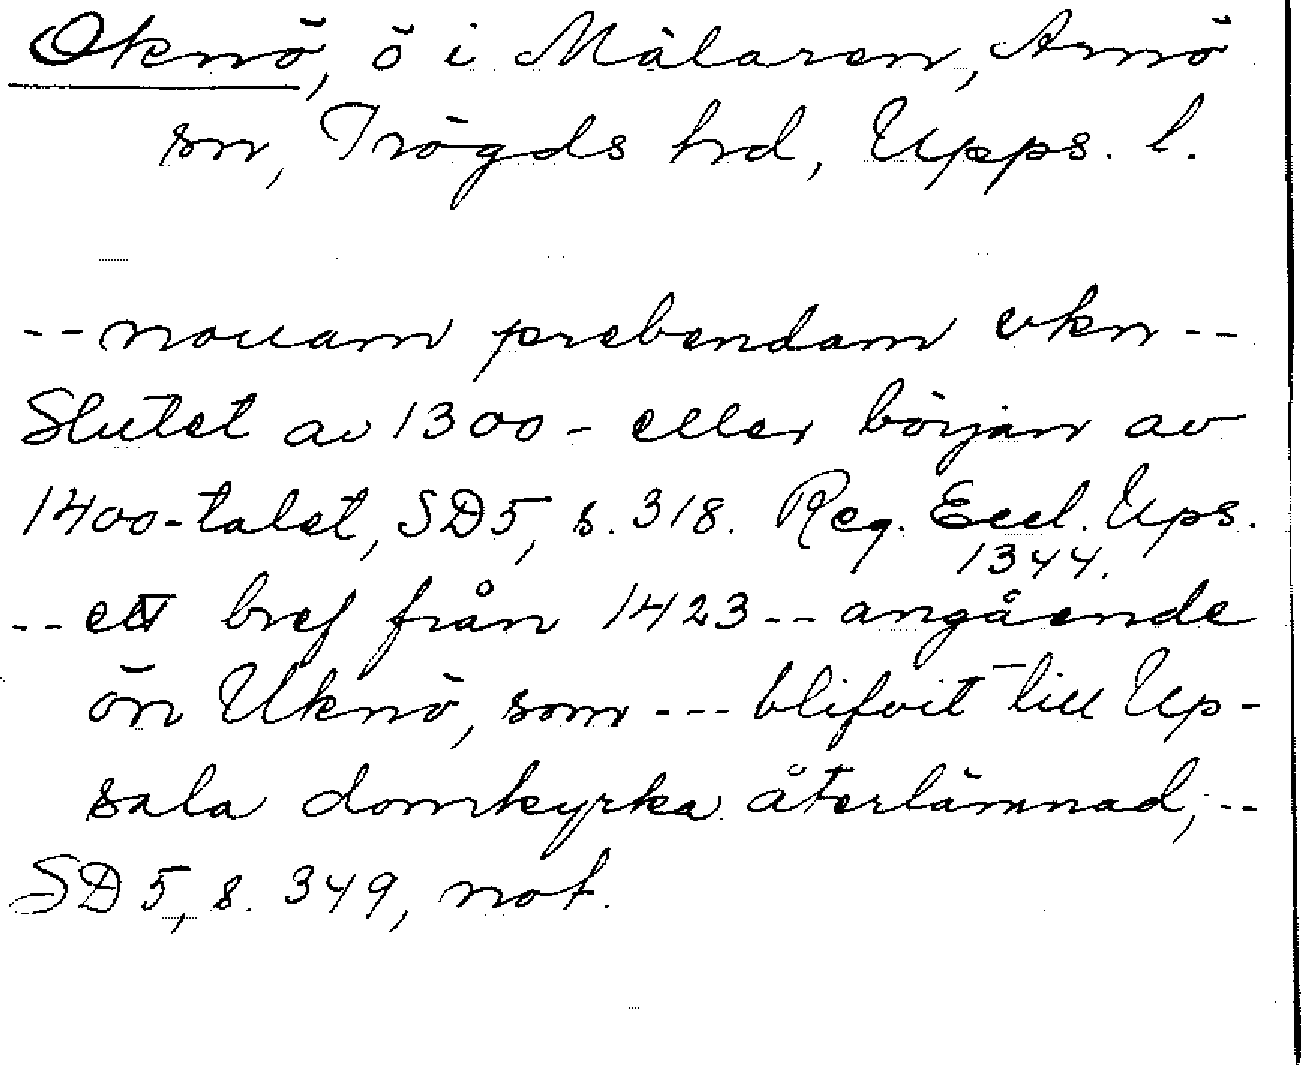 Oknö, ö i Mälaren, Arnö
sn, Trögds hrd, Upps. l.
-- nouam prebendam vkn --
Slutet av 1300- eller början av
1400-talet, SD5, s. 318. Reg. Eccl. Ups.
1344.
-- ett bref från 1423 -- angående
ön Uknö, som --- blifvit till Up-
sala domkyrka återlämnad; --
SD 5, s. 349, not.